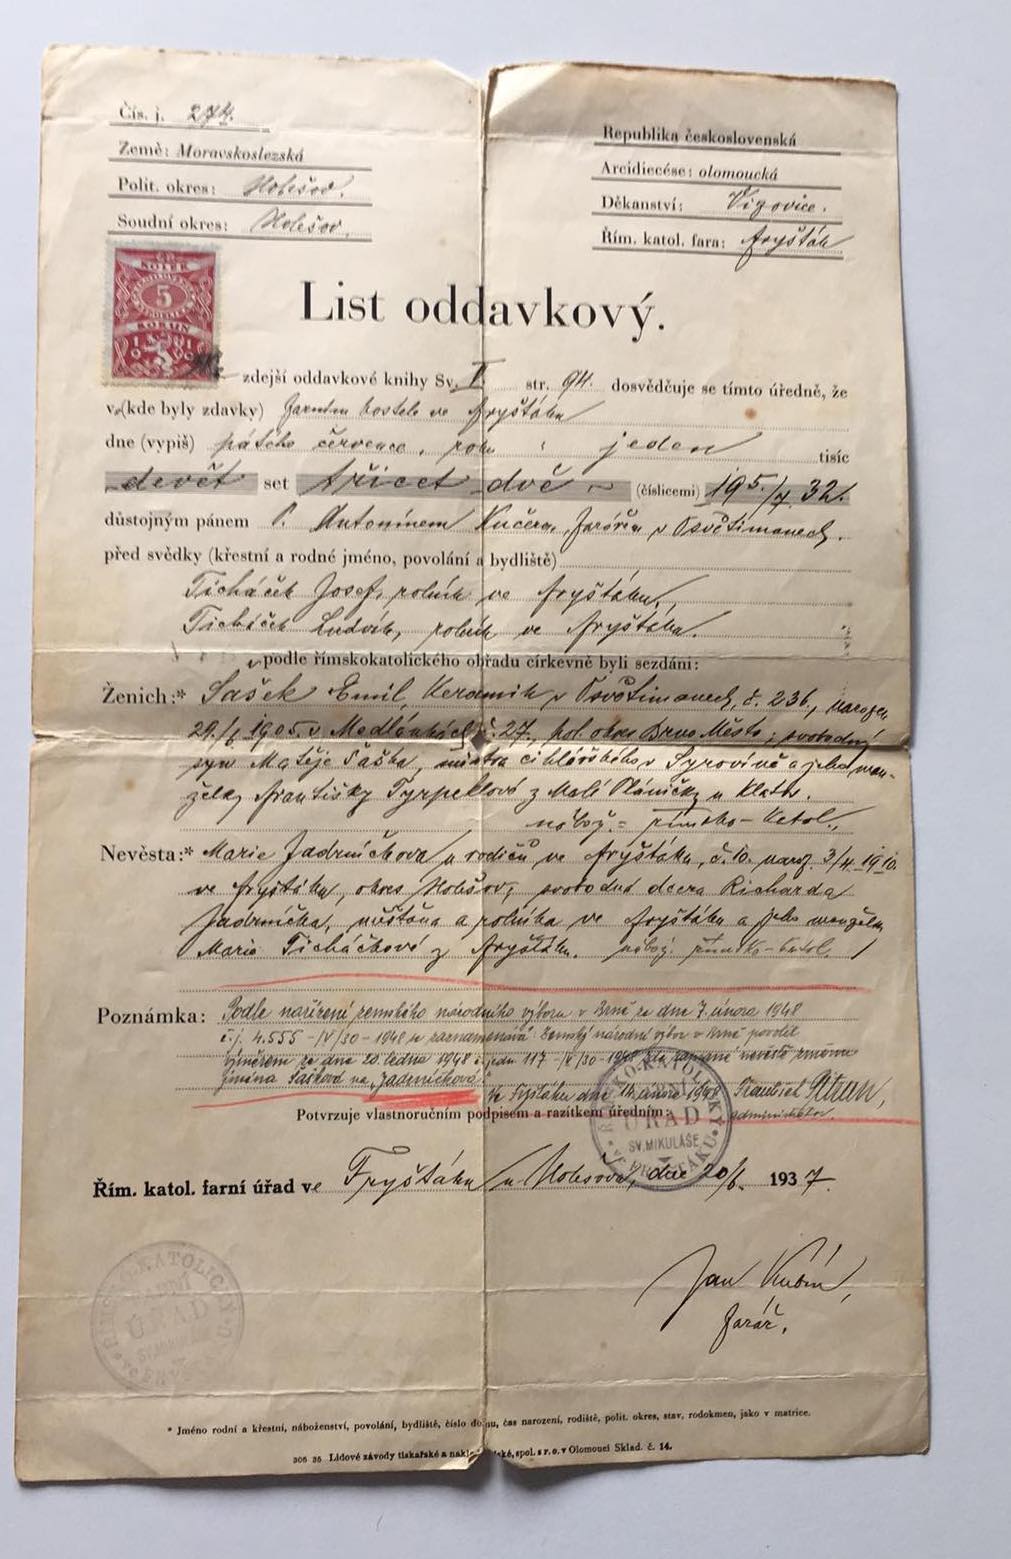 Čís. j. 274.
Země: Moravskoslezská
Polit. okres: Holešov.
Soudní okres: Holešov.
Republika československá
Arcidiecése: olomoucká
Děkanství: Vizovice.
Řím. katol. fara: Fryšták
KOLEK
5
KORUN
1919
List oddavkový.
zdejší oddavkové knihy Sv. V. str. 94. dosvědčuje se tímto úředně, že
v (kde byly zdavky) farním kostele ve Fryštáku
dne (vypiš) pátého července, roku jeden tisíc
devět set třicet dvě (číslicemi) 19 5./7. 32.
důstojným pánem P. Antonínem Kučerou, farářem v Osvětimanech.
před svědky (křestní a rodné jméno, povolání a bydliště)
Ticháček Josef, rolník ve Fryštáku,
Ticháček Ludvík, rolník ve Fryštáku.
podle římskokatolického obřadu církevně byli sezdáni:
Ženich:* Šašek Emil, keramik v Osvětimanech, č. 236, narozen
1905 v Medlánkách č. 27, pol. okres Brno Město; svobodný
syn Matěje Šaška, mistra cihlářského v Syrovíně a jeho man-
želky Františky Tyrpeklové z Malé Pláničky u Klatov.
nábož. = římsko-katol.,
Nevěsta:* Marie Jadrníčková u rodičů ve Fryštáku, č. 10. naroz. 3/4. 1910.
ve Fryštáku, okres Holešov; svobodná dcera Richarda
Jadrníčka, měšťana a rolníka ve Fryštáku a jeho manželky
Marie Ticháčkové z Fryštáku. nábož. římsko-katol.
Poznámka: Podle nařízení zemského národního výboru v Brně ze dne 7. února 1948
č. j. 4.555 - IV/30 - 1948 se zaznamenává: Zemský národní výbor v Brně povolil
výměrem ze dne 20. ledna 1948 117 - IV/30 - 1948 zde zapsané nevěstě změnu
jména Šašková na „Jadrníčková“.
Ve Fryštáku dne 14. února 1948 František Pitrun,
administrátor.
Potvrzuje vlastnoručním podpisem a razítkem úředním:
ŘÍMSKO-KATOLICKÝ
FARNÍ
ÚŘAD
SV. MIKULÁŠE
Řím. katol. farní úřad ve Fryštáku u Holešova, dne 20/6. 1937.
ÚŘAD
Jan Kubín,
farář.
* Jméno rodní a křestní, náboženství, povolání, bydliště, číslo domu, čas narození, rodiště, polit. okres, stav, rodokmen, jako v matrice.
306 35 Lidové závody tiskařské a nakladatelské, spol. s r. o. v Olomouci Sklad. č. 14.